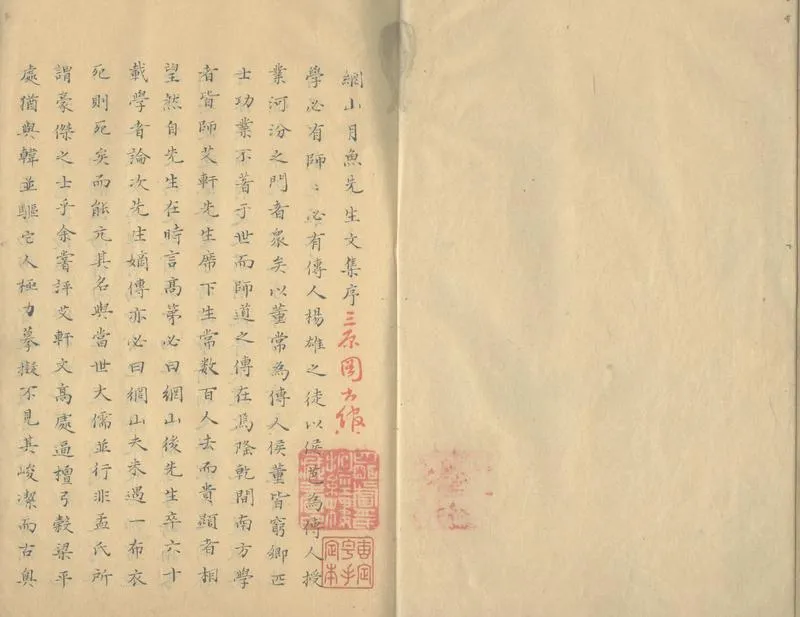 網山月魚先生文集序
學必有師〻必有傳人楊雄之徒以侯芭為傳人授
業河汾之門者衆矣以董常為傳人侯董皆窮鄉匹
士功業不著于世而師道之傳在焉隆乾間南方學
者皆師艾軒先生席下生常數百人去而貴顯者相
望然自先生在時言高第必曰網山後先生卒六十
載學者論次先生嫡傳亦必曰網山夫未遇一布衣
死則死矣而能亢其名與當世大儒並行非孟氏所
謂豪傑之士乎余嘗評艾軒文高處逼檀弓穀梁平
處猶與韓並驅它人極力摹擬不見其峻潔而古奧